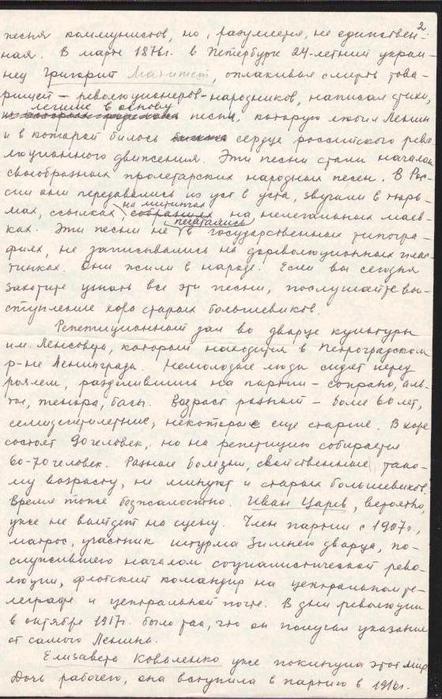 2.
песня коммунистов, но, разумеется, не единствен-
ная. В марте 1876г. в Петербурге 24-летний украи-
нец Григорий Мачтет, оплакивая смерть това-
рищей – революционеров-народников, написал стихи,
легшие в основу
песни, которую любил Ленин
и в которой билось сердце российского рево-
люционного движения. Эти песни стали началом
своеобразных пролетарских народных песен. В Рос-
сии они передавались из уст в уста, звучали в тюрь-
на митингах
мах, ссылках, собраниях на нелегальных маев-
печатались
ках. Эти песни не в государственных типогра-
фиях, не записывались на дореволюционных плас-
тинках. Они жили в народе. Если вы сегодня
захотите узнать все эти песни, послушайте вы-
ступление хора старых большевиков.
Репетиционный зал во дворце культуры
им. Ленсовета, который находится в Петроградском
р-не Ленинграда. Немолодые люди сидят перед
роялем, разделившись на партии – сопрано, аль-
ты, тенора, басы. Возраст разный – более 60 лет,
семидесятилетние, некоторые еще старше. В хоре
состоят 90 человек, но на репетицию собирается
60-70 человек. Разные болезни, свойственные тако-
му возрасту, не минуют и старых большевиков.
Время тоже безжалостно. Иван Царев, вероятно,
уже не выйдет на сцену. Член партии с 1907г.,
матрос, участник штурма Зимнего дворца, по-
служившего началом социалистической рево-
люции, флотский командир на центральном те-
леграфе и центральной почте. В дни революции
в октябре 1917г. было так, что он получал указание
от самого Ленина.
Елизавета Коваленко уже покинула этот мир.
Дочь рабочего, она вступила в партию в 1916г.